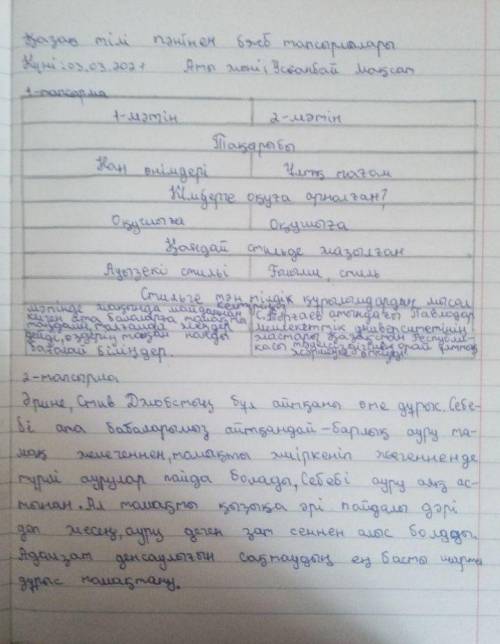 Қазақ тілі пәнінен бжб тапсырмалары
Күні: 03.03.2021 Аты жөні; Усванбай Мақсат
1-тапсырма
1-мәтін 2-мәтін
Тақырыбы
Нан өнімдері Ұлттық тағам
Кімдерге оқуға арналған?
Оқушыға Оқушыға
Қандай стильде жазылған
Ауызекі стильі Ғылыми, стиль
Стильге тән тілдік құрылымдардың мысал
мәтінде жақында майданнан
келген ата бабаларға
таңдап, талғамай жеңдер С.Торғаев атындағы Павлодар
дейді, өздерің тапқан нанды мемлекеттік университетінің
бағалай біліңдер. жастары Қазақстан Республи-
касы
2-тапсырма
Әрине, Стив Джобстың бұл айтқаны өте дұрыс. Себе-
бі ата бабаларымыз айтқандай-барлық ауру та-
мақ жемегеннен, тамақты жиіркеніп жегенненде
түрлі аурулар пайда болады, Себебі ауру аяқ ас-
тынан. Ал тамақты қызыға әрі пайдалы дәрі
деп жесең, ауру деген зат сеннен алыс болады.
Адамзат денсаулығын сақтаудың ең басты шарты
дұрыс тамақтану.